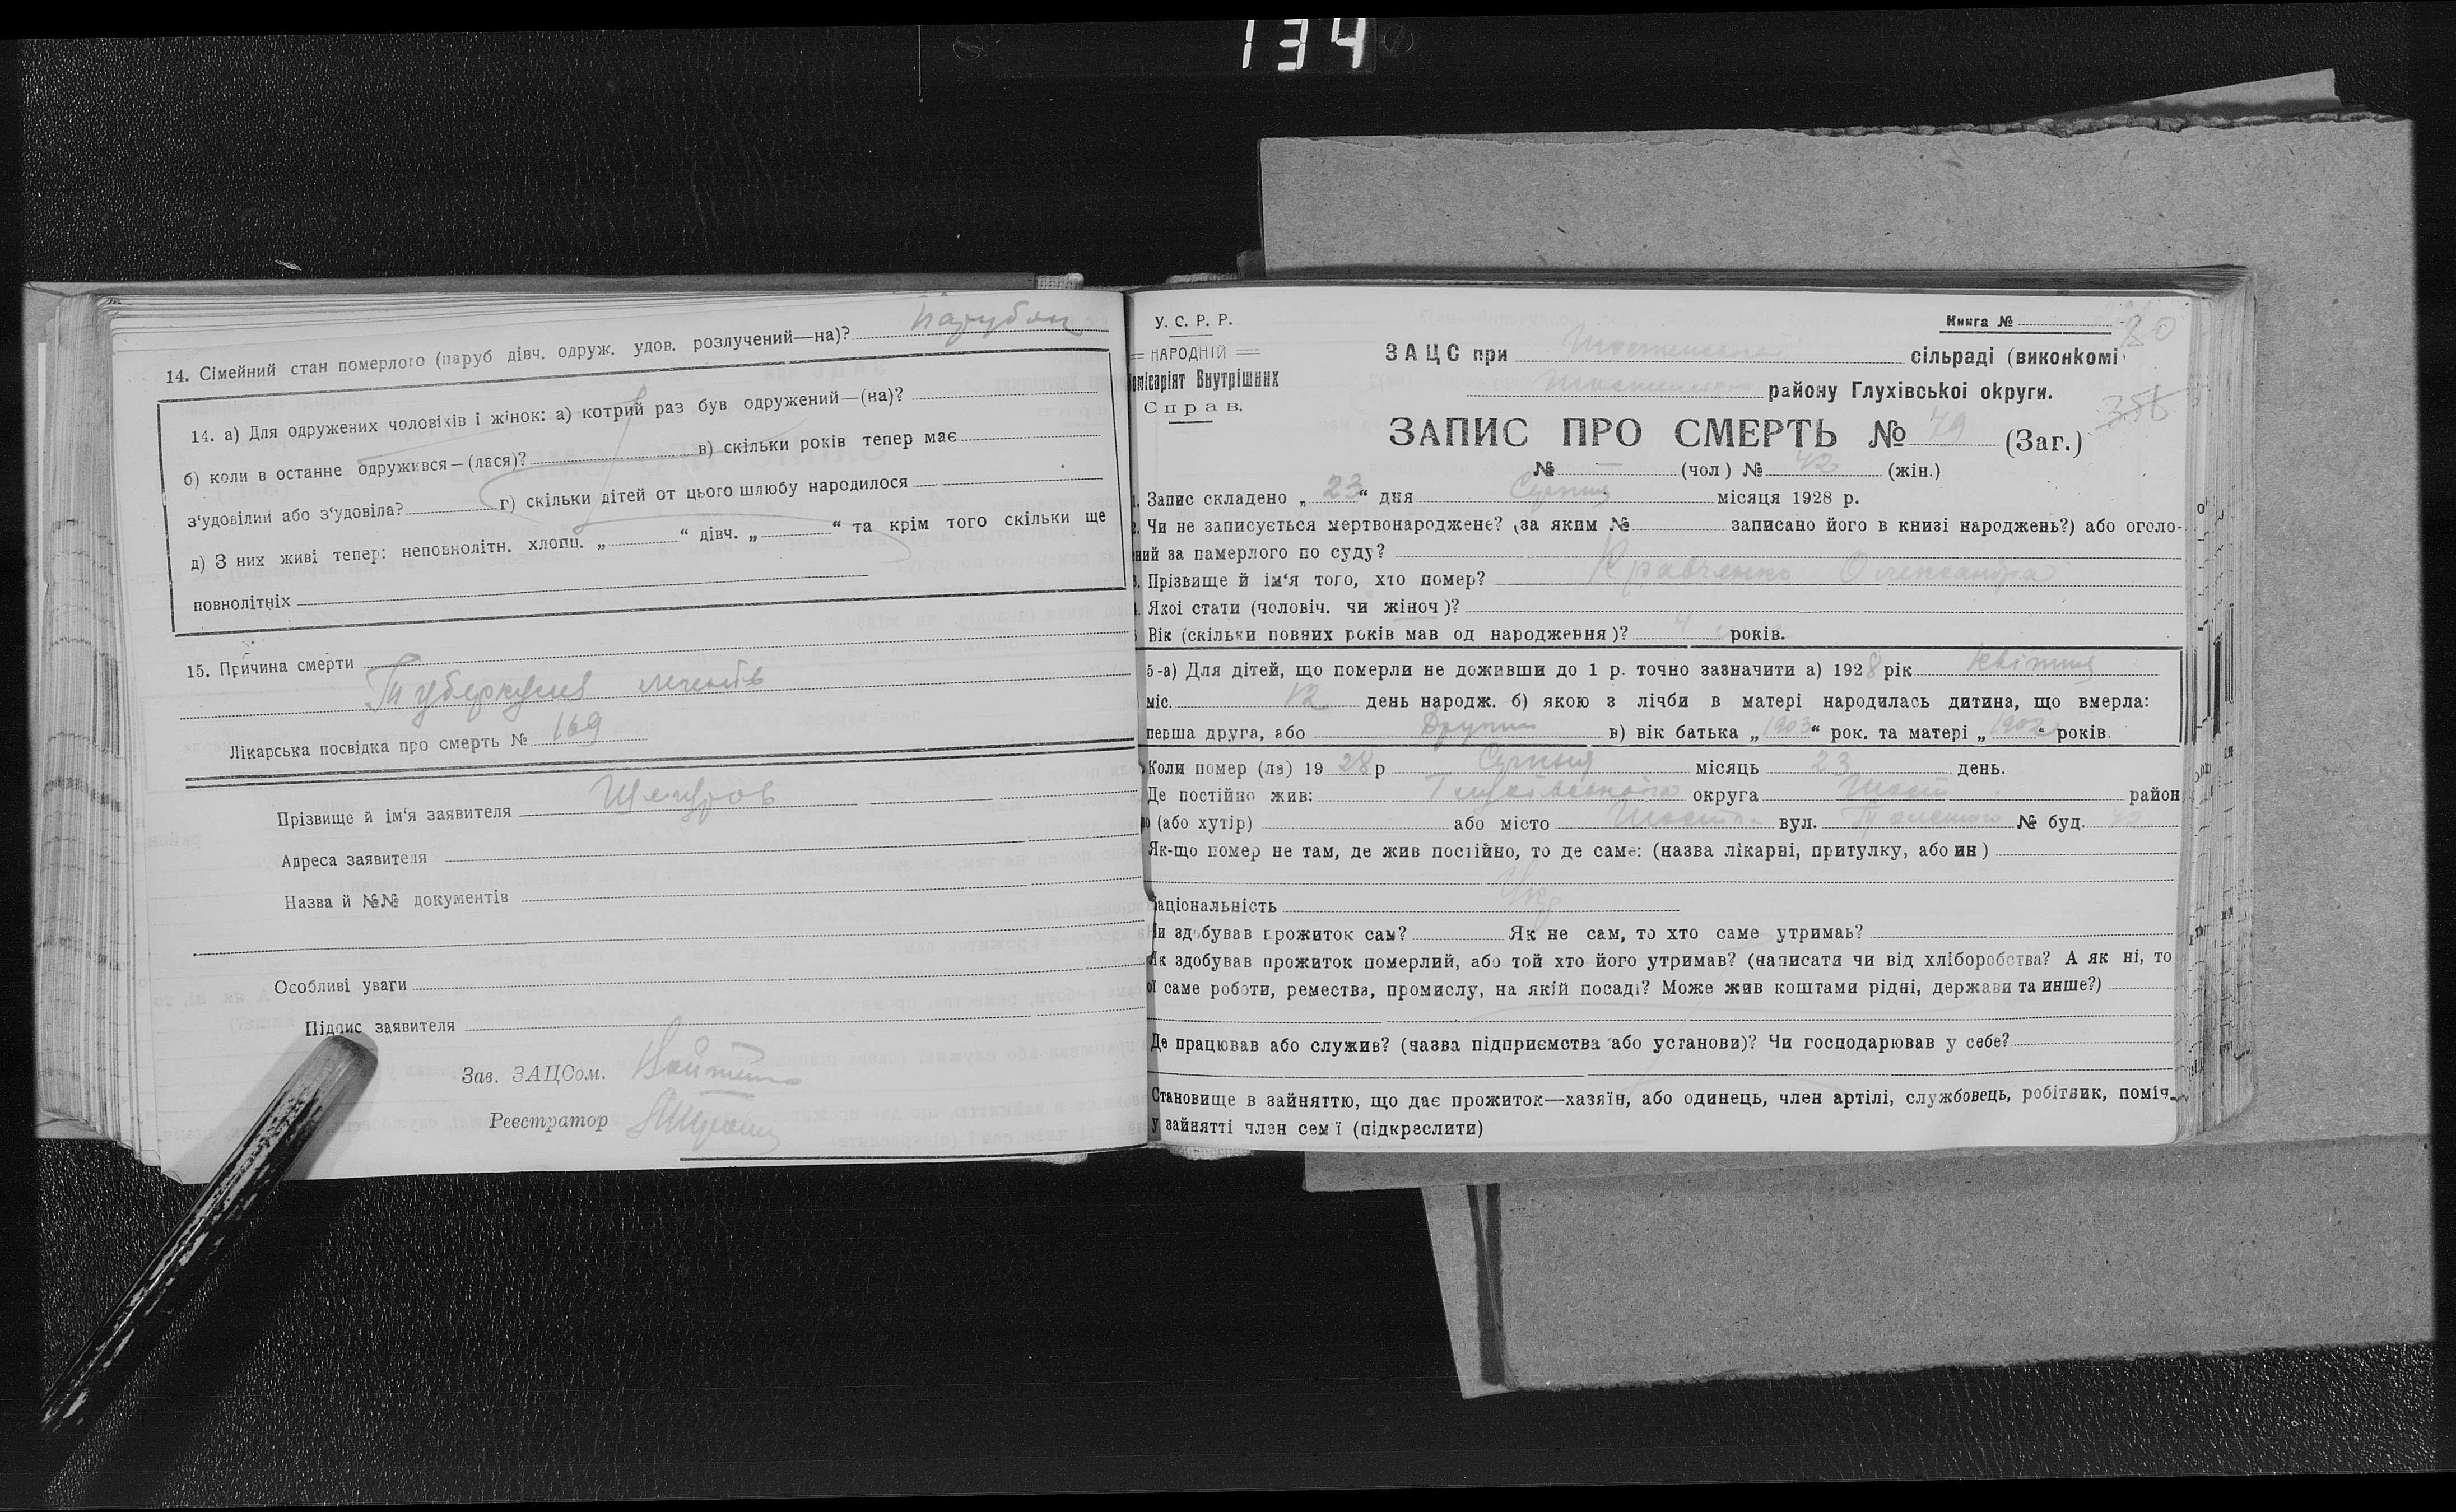 134
14. Сімейний стан померлого (паруб дівч. одруж. удов. розлучений—на)? Парубок
14. а) Для одружених чоловіків і жінок: а) котрий раз був одружений—(на)?
б) коли в останне одружився—(лася)? в) скільки років тепер має
з'удовілий або з'удовіла? г) скільки дітей от цього шлюбу народилося
д) З них живі тепер: неповнолітн. хлопц. „ “ дівч. „ “ та крім того скільки ще
повнолітніх
15. Причина смерти
Туберкульоз легенів
Лікарська посвідка про смерть № 169
Прізвище й ім'я заявителя
Адреса заявителя
Назва й №№ документів
Особливі уваги
Підпис заявителя
Зав. ЗАЦСом.
Реєстратор
У. С. Р. Р.
НАРОДНІЙ
омісаріят Внутрішних
Справ.
Книга № 80
ЗАЦС при сільраді (виконкомі
району Глухівської округи.
356
ЗАПИС ПРО СМЕРТЬ № 49 (Заг.)
№ — (чол) № 42 (жін.)
1. Запис складено „23“ дня Серпня місяця 1928 р.
2. Чи не записується мертвонароджене? (за яким № записано його в книзі народжень?) або оголо-
ний за памерлого по суду?
3. Прізвище й ім'я того, хто помер? Кравченко Олександра
Якої стати (чоловіч. чи жіноч)?
Вік (скільки повних років мав од народження)? 4 років.
5-а) Для дітей, що померли не доживши до 1 р. точно зазначити а) 1928 рік Квітня
міс. 12 день народж. б) якою з лічби в матері народилась дитина, що вмерла:
перша друга, або Друга в) вік батька „1903“ рок. та матері „1902“ років.
Коли помер (ла) 1928 р Серпня місяць 23 день.
Де постійно жив: Глухівського округа Шост район
(або хутір) або місто Шостка вул. Толстого № буд. 42
Як-що помер не там, де жив постійно, то де саме: (назва лікарні, притулку, або ин)
аціональність Укр
и здобував прожиток сам? Як не сам, то хто саме утримав?
Як здобував прожиток померлий, або той хто його утримав? (написати чи від хліборобства? А як ні, то
ої саме роботи, ремества, промислу, на якій посаді? Може жив коштами рідні, держави та инше?)
Де працював або служив? (назва підприємства або установи)? Чи господарював у себе?
Становище в зайняттю, що дає прожиток—хазяїн, або одинець, член артілі, службовець, робітник, поміч.
у зайнятті член сем'ї (підкреслити)